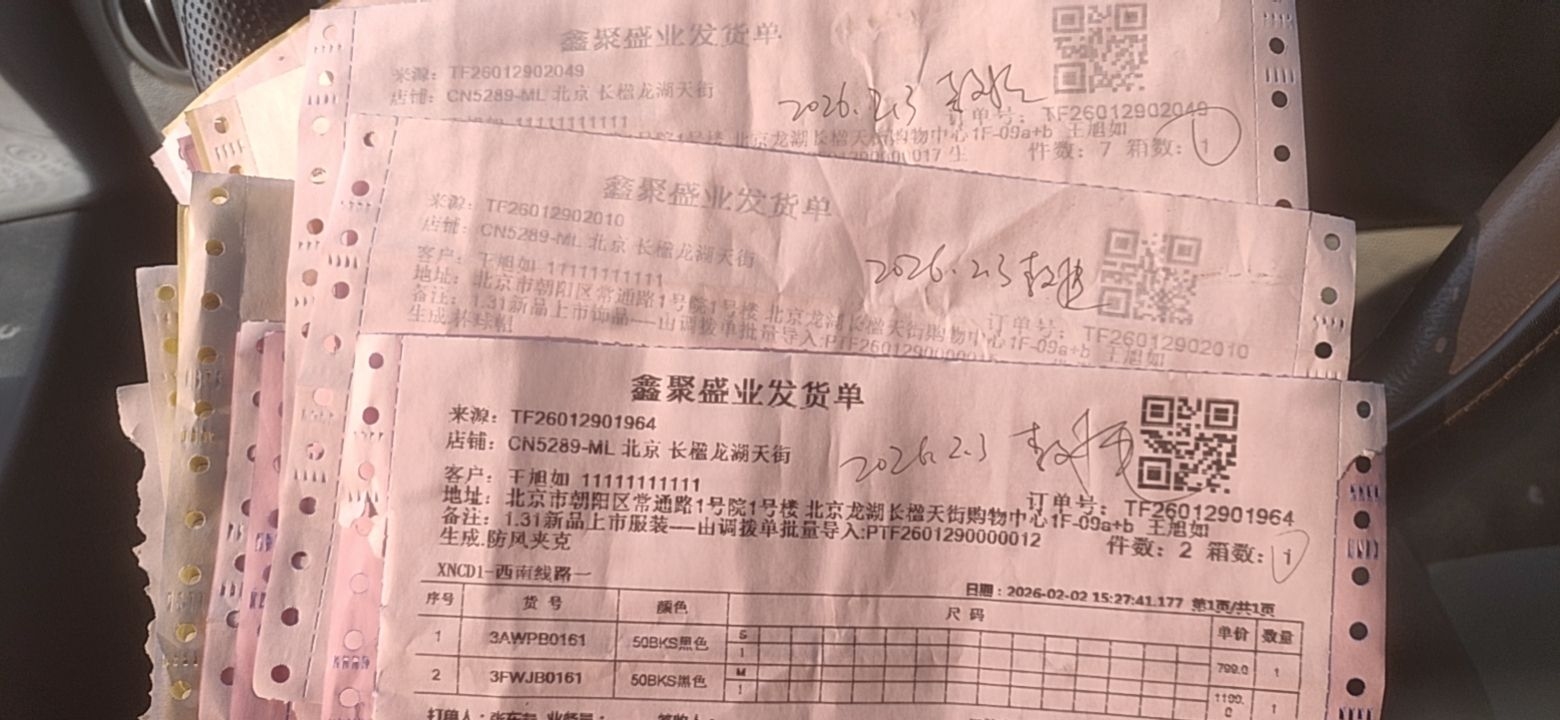 鑫聚盛业发货单
来源：TF26012902049
店铺：CN5289-ML 北京 长楹龙湖天街
2026.2.3
订单号：TF26012902049
11111111111
1号院1号楼 北京龙湖长楹天街购物中心1F-09a+b 王旭如
件数：7 箱数：1
鑫聚盛业发货单
来源：TF26012902010
店铺：CN5289-ML 北京 长楹龙湖天街
2026.2.3
客户：王旭如 11111111111
订单号：TF26012902010
地址：北京市朝阳区常通路1号院1号楼 北京龙湖长楹天街购物中心1F-09a+b 王旭如
备注：1.31新品上市饰品——由调拨单批量导入:PTF26012900000
生成.棒球帽
鑫聚盛业发货单
来源：TF26012901964
店铺：CN5289-ML 北京 长楹龙湖天街
2026.2.3
客户：王旭如 11111111111
订单号：TF26012901964
地址：北京市朝阳区常通路1号院1号楼 北京龙湖长楹天街购物中心1F-09a+b 王旭如
备注：1.31新品上市服装——由调拨单批量导入:PTF2601290000012
生成.防风夹克
件数：2 箱数：1
XNCD1-西南线路一
日期：2026-02-02 15:27:41.177 第1页/共1页
序号 货号 颜色 尺码 单价 数量
1 3AWPB0161 50BKS黑色 S 1 799.0 1
2 3FWJB0161 50BKS黑色 M 1 1199.0 1
打单人：